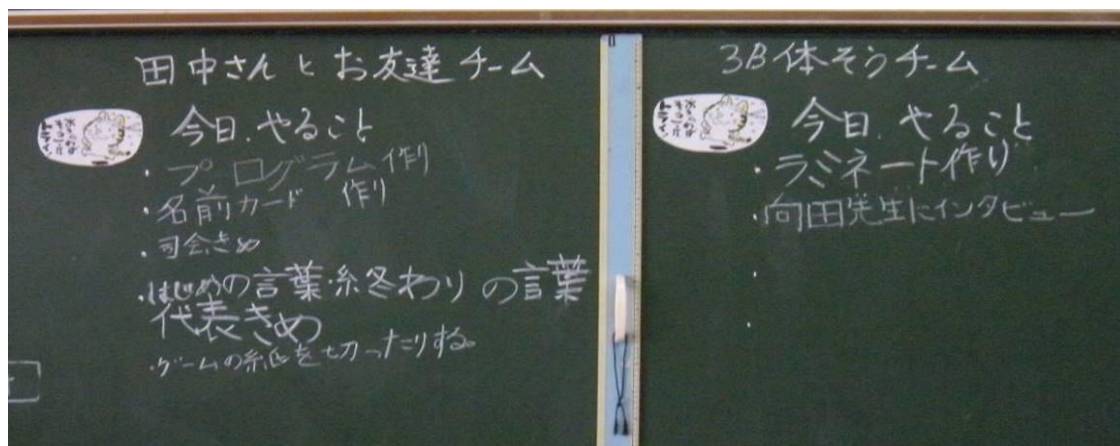 田中さんとお友達チーム
今日.やること
・プログラム作り
・名前カード 作り
・司会きめ
・はじめの言葉・終わりの言葉
代表きめ
・ゲームの紙を切ったりする。
3B体そうチーム
今日.やること
・ラミネート作り
・向田先生にインタビュー
・
・